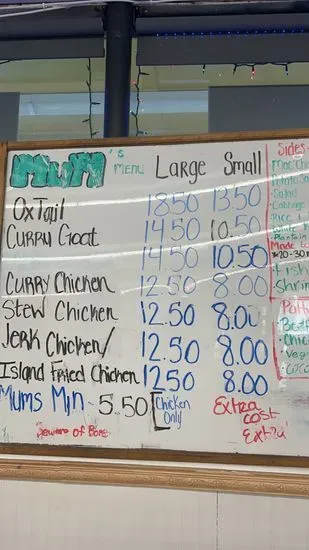 MUM's MENU Large Small
OxTail 18.50 13.50
CURRY Goat 14.50 10.50
14.50 10.50
CURRY Chicken 12.50 8.00
Stew Chicken 12.50 8.00
Jerk Chicken/ 12.50 8.00
Island Fried Chicken 12.50 8.00
Mums Min - 5.50 [Chicken
Only
"Beware of Bone"
Extra
cost
Extra
Sides
Mac Che
Potato Sa
Salad
Cabbage
Rice
Plantain
Made to
20-30 m
Fish
Shrim
Patt
Bee
Chic
Veg
Coco